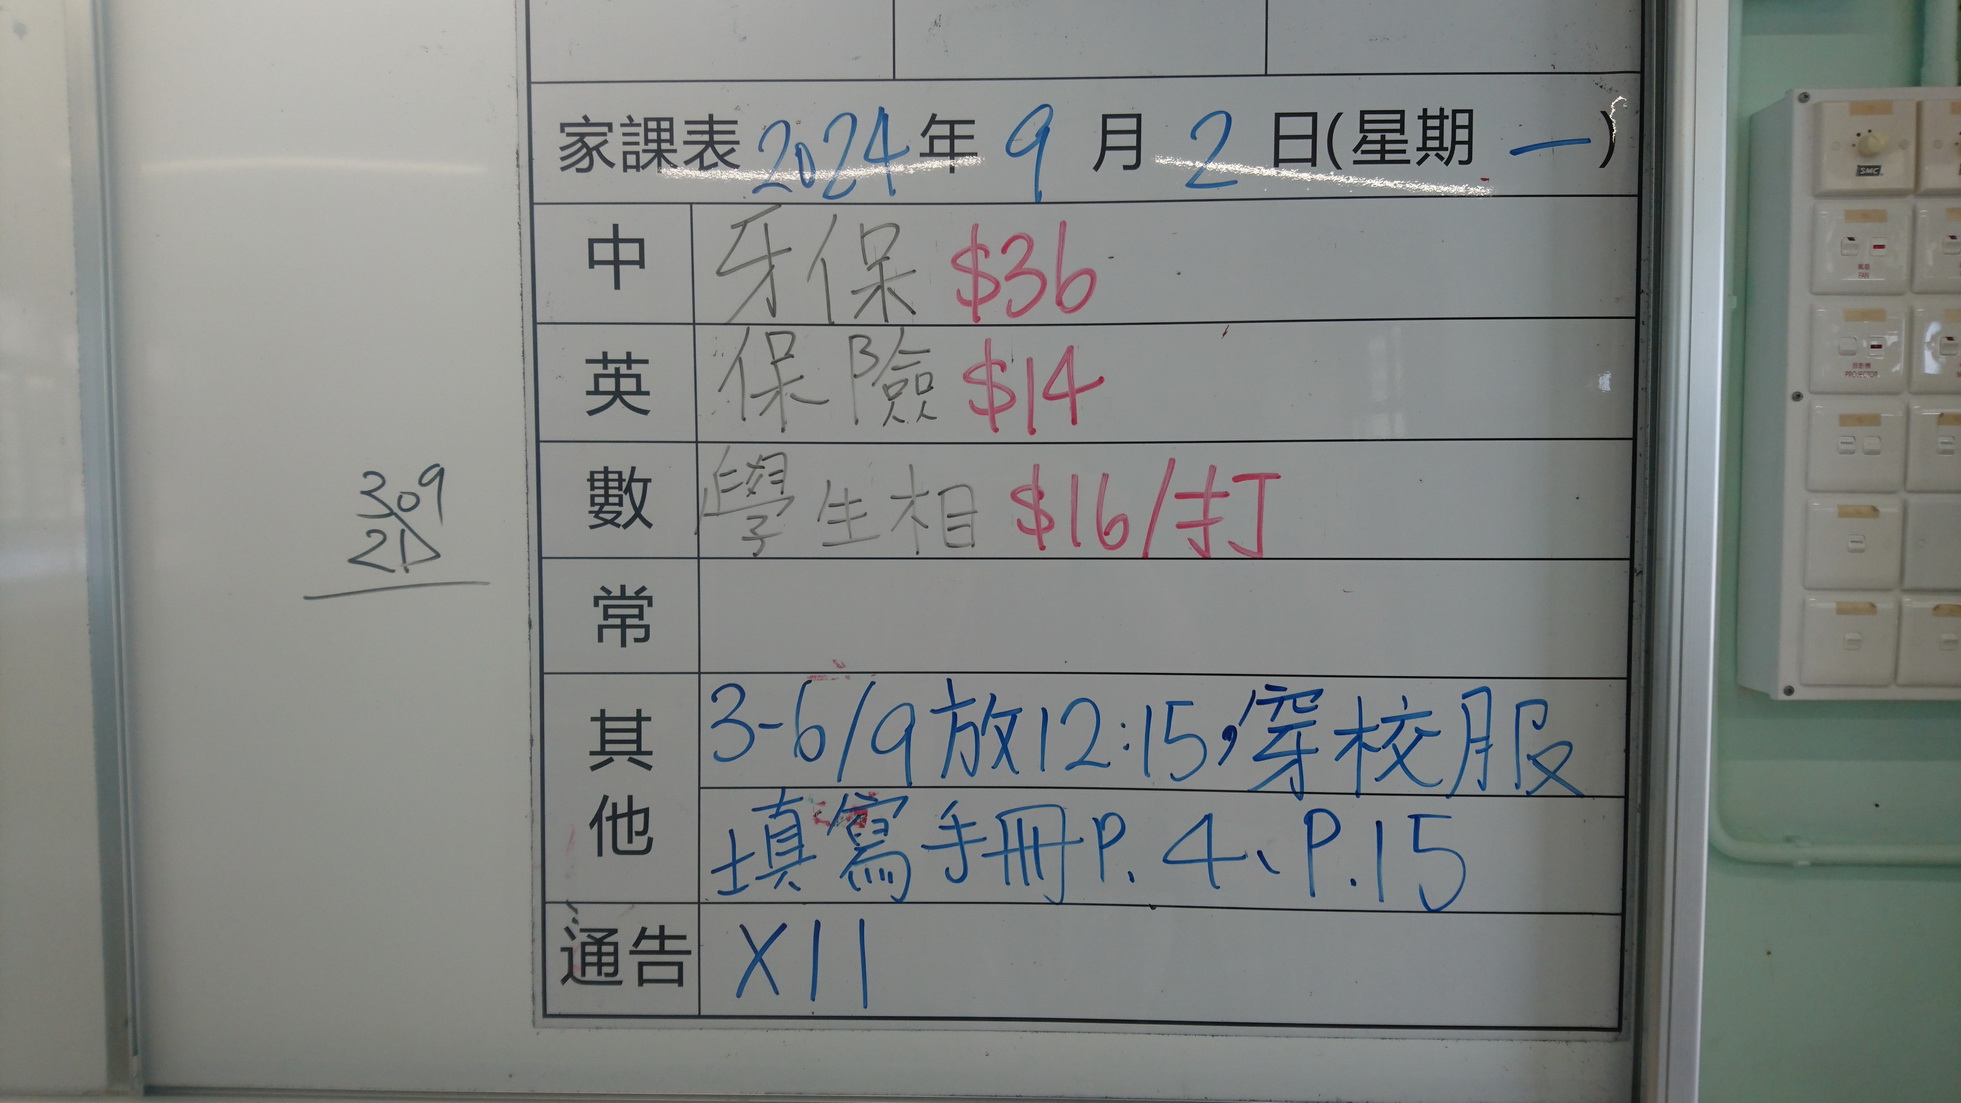 家課表 2024 年 9 月 2 日(星期 一)
中 牙保 $36
英 保險 $14
數 學生相 $16/打
常
其他 3-6/9放12:15,穿校服
填寫手冊P.4、P.15
通告 X11
309
2D
SMC
FAN
PROJECTOR